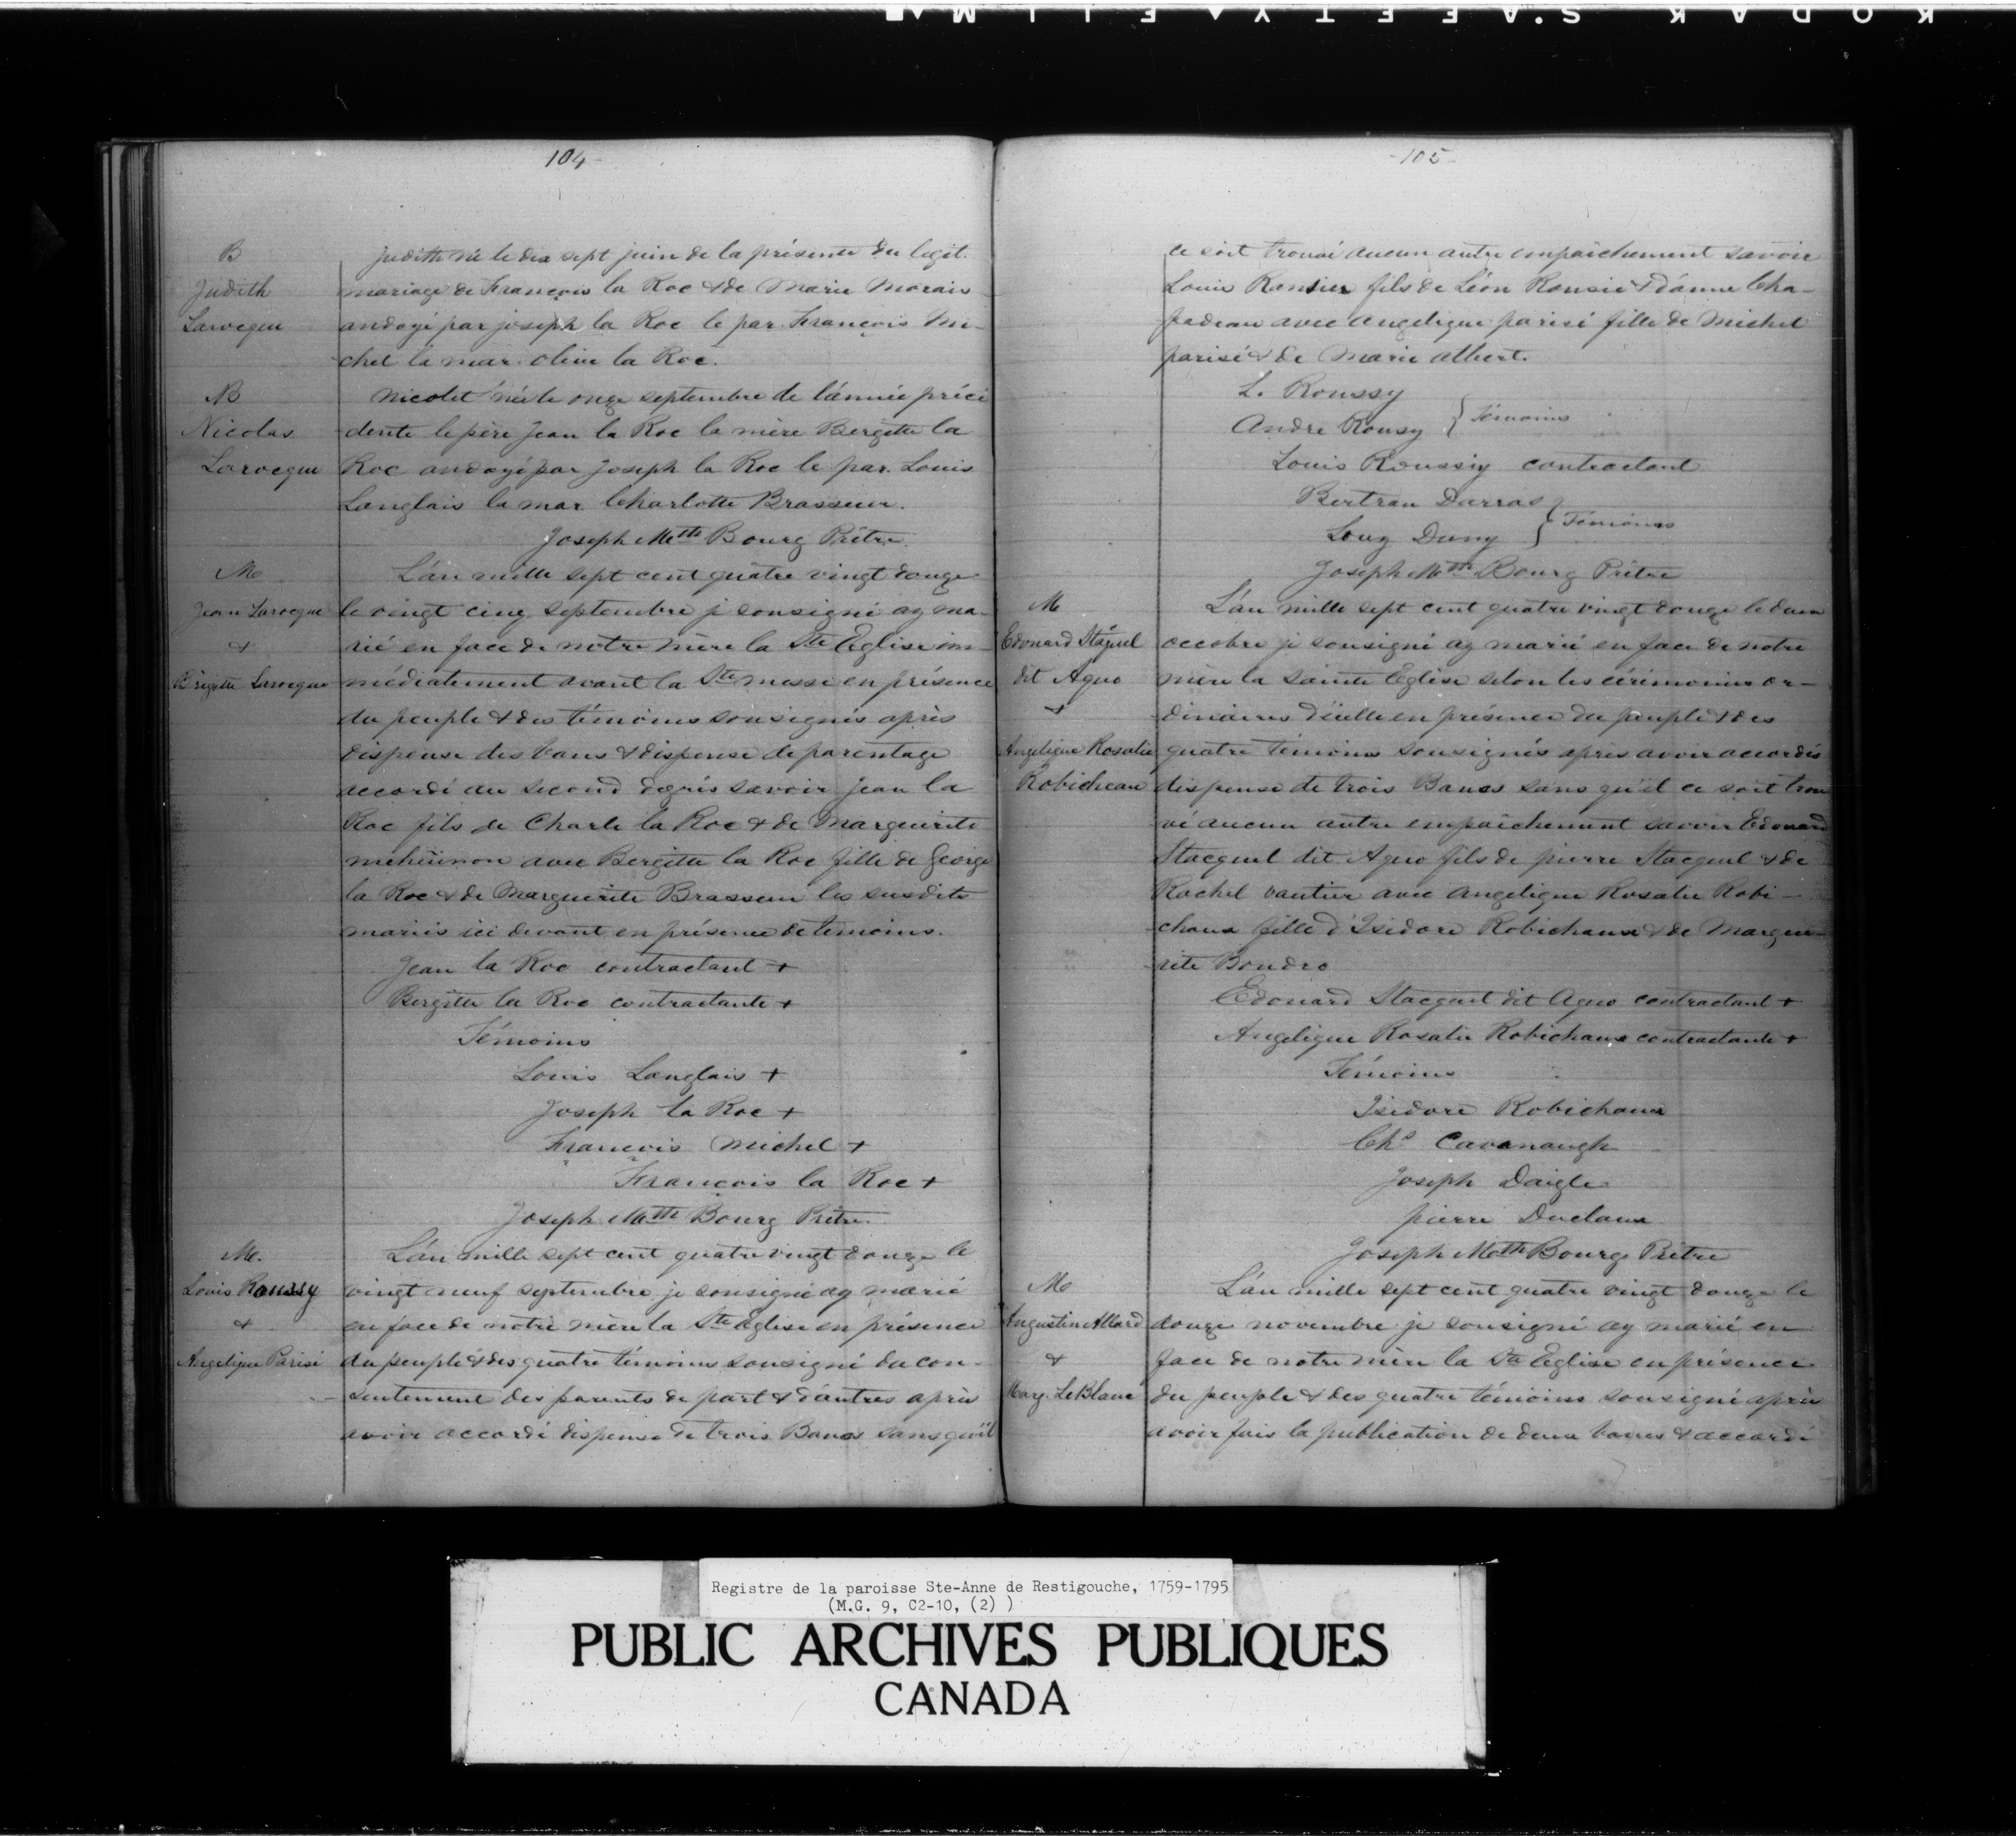 KODAK S.AFETY FILM
104
B
Judith
Larocque
judith né le dix sept juin de la présente du legit.
mariage de François la Roc & de Marie Morais
andoyé par joseph la Roc le par. François Mi-
chel la mar. olive la Roc.
B
Nicolas
Larocque
Nicolet né le onze septembre de l'année préci
dente le père Jean la Roc la mère Bergitte la
Roc andoyé par Joseph la Roc le par. Louis
Langlais la mar. Charlotte Brasseur.
Joseph Mtth Bourg Prêtre.
M
Jean Larocque
&
Brigitte Larocque
L'án mille sept cent quatre vingt douze
le vingt cinq septembre je sousigné ay ma-
rié en face de notre mère la Ste Eglise im-
médiatement avant la Ste messe en présence
du peuple & des témoins sousignés après
dispense des bans & dispense de parentage
accordé au second degrés savoir jean la
Roc fils de Charle la Roc & de Marguerite
avec Bergitte la Roc fille de George
la Roc & de Marguerite Brasseur les susdits
mariés ici devant en présence de temoins.
Jean la Roc contractant +
Bergitte la Roc contractante +
Témoins
Louis Langlais +
Joseph la Roc +
François Michel +
François la Roc +
Joseph Matth Bourg Prêtre.
M.
Louis Roussy
&
Angelique Parisé
L'án mille sept cent quatre vingt douze le
vingt neuf septembre je sousigné ay marié
en face de notre mère la Ste Eglise en présence
du peuple & des quatre témoins sousigné du con-
sentement des parents de part & d'autres après
avoir accordé dispense de trois Bancs sans qu'il
-105-
ce soit trouvé aucun autre empaichement savoir
Louis Ronsier fils de Léon Ronsié & d'ánne Cha-
padeau avec angelique parisé fille de Michel
parisé & de Marie albert.
L. Roussy
Andre Rousy } Témoins
Louis Roussiy contractant
Bertran Darras
Louy Duny } Témoins
Joseph Mtth Bourg Prêtre
M
Edouard Stáquel
dit Aguo
&
Angelique Rosalie
Robicheau
L'án mille sept cent quatre vingt douze le deux
occobre je sousigné ay marié en face de notre
mère la Sainte Eglise selon les cérémonies or-
dinaires d'icelle en présence du peuple & des
quatre témoins sousignés après avoir accordés
dispense de trois Bancs sans qu'il ce soit trou
vé aucun autre empaichement savoir Edouard
Stacquel dit Aguo fils de pierre Stacquel & de
Rachel vautier avec angelique Rosalie Robi-
chaux fille d'Isidore Robichaux & de Margue-
rite Boudro
Edouard Stacquel dit Aguo contractant +
Angelique Rosalie Robichaux contractante +
Témoins
Isidore Robichaux
Chs Cavanaugh
Joseph Daigle
pierre Duclaux
Joseph Math Bourg Prêtre
M
Augustin Allard
&
Marg. LeBlanc
L'án mille sept cent quatre vingt douze le
douze novembre je sousigné ay marié en
face de notre mère la Ste Eglise en présence
du peuple & des quatre témoins sousigné après
avoir fais la publication de deux bancs & accordé
Registre de la paroisse Ste-Anne de Restigouche, 1759-1795
(M.G. 9, C2-10, (2) )
PUBLIC ARCHIVES PUBLIQUES
CANADA